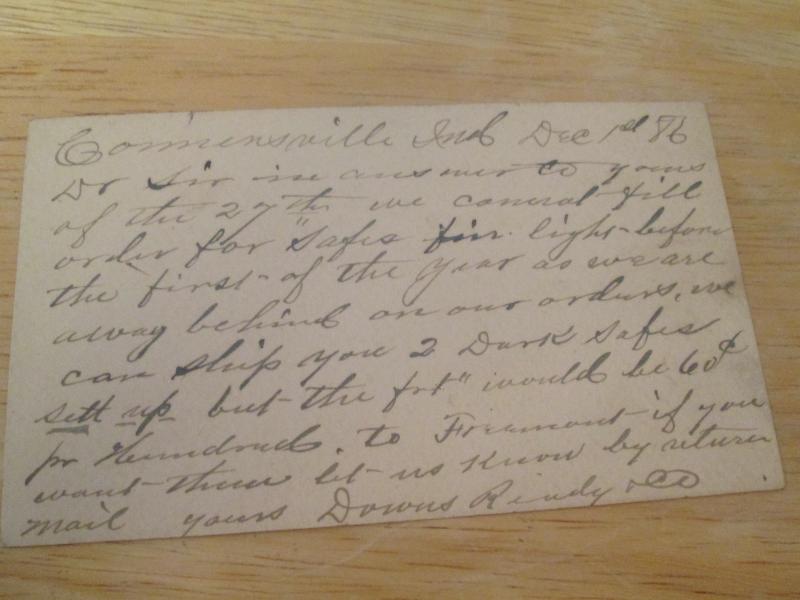 Connersville Ind Dec 1st 86
Dr Sir in answer to yours
of the 27th we cannot fill
order for "Safes fin. light before
the first of the year as we are
away behind on our orders, we
can ship you 2 Dark Safes
sett up but the frt" would be 60¢
pr Hundred. to Freemont if you
want them let us know by return
mail yours Downs Ready & Co